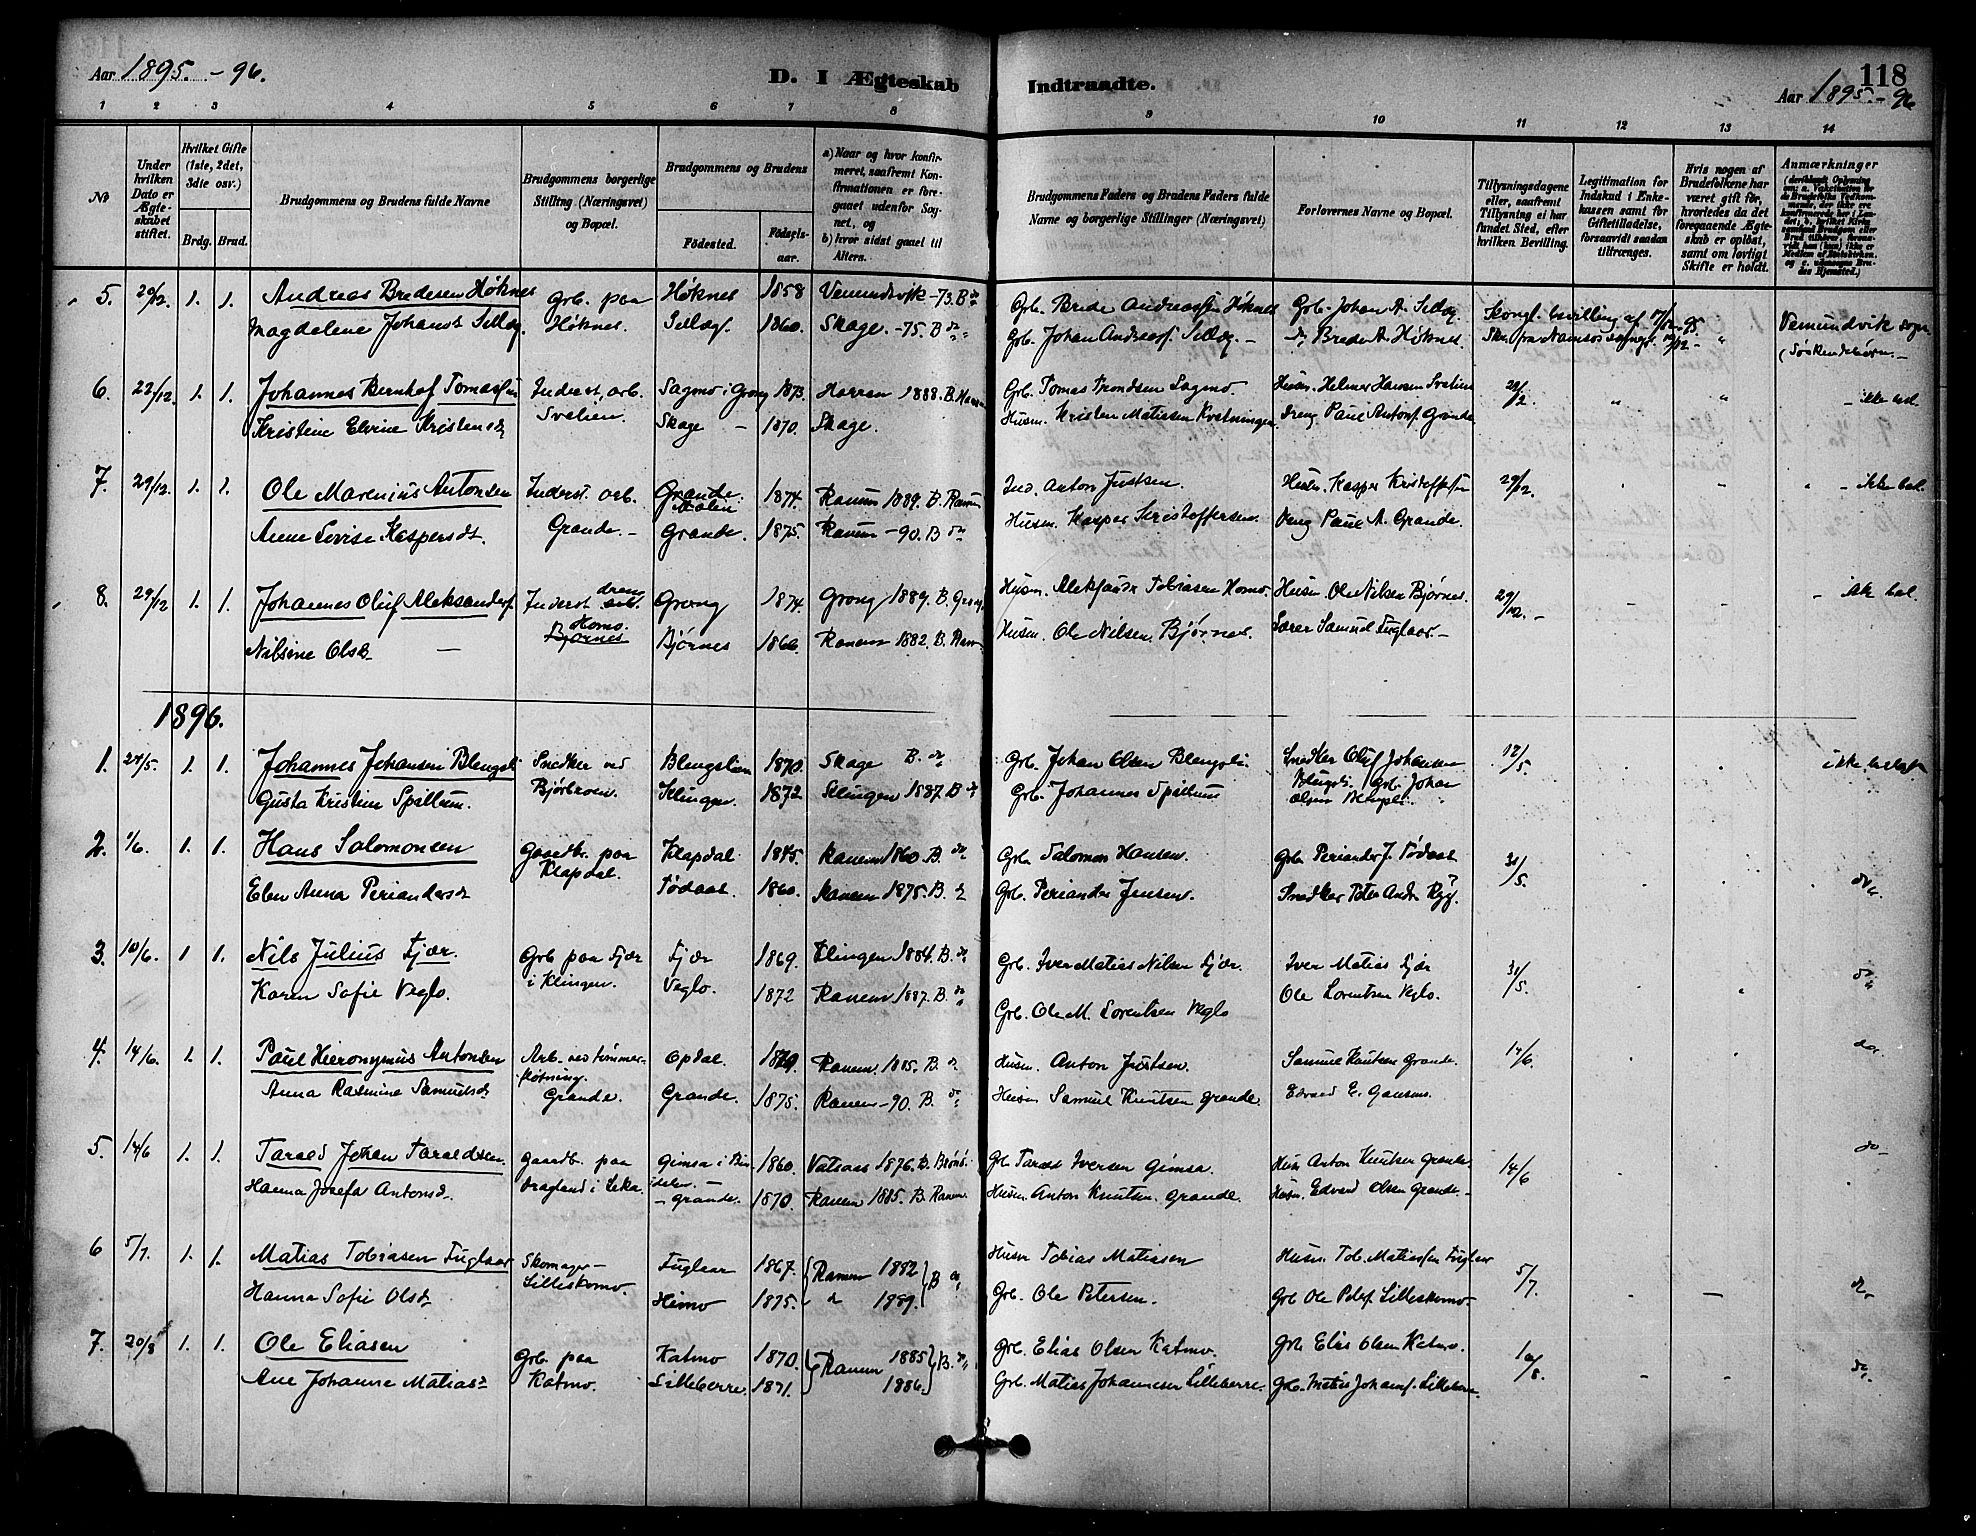 Aar 1895.-96.
D. I Ægteskab
Indtraadte.
118
Aar 1895.-96
1 2 3 4 5 6 7 8 9 10 11 12 13 14
No
Under hvilken Dato er Ægteskabet stiftet.
Hvilket Gifte (1ste, 2det, 3die osv.)
Brdg. Brud.
Brudgommens og Brudens fulde Navne
Brudgommens borgerlige Stilling (Næringsvei) og Bopæl.
Brudgommens og Brudens
Fødested.
Fødsels-aar.
a) Naar og hvor konfirmeret, saafremt Konfirmationen er foregaaet udenfor Sognet, og
b) hvor sidst gaaet til Alters.
Brudgommens Faders og Brudens Faders fulde Navne og borgerlige Stillinger (Næringsvei)
Forlovernes Navne og Bopæl.
Tillysningsdagene eller, saafremt Tillysning ei har fundet Sted, efter hvilken Bevilling.
Legitimation for Indskud i Enkekassen samt for Giftetilladelse, forsaavidt saadan tiltrænges.
Hvis nogen af Brudefolkene har været gift før, hvorledes da det foregaaende Ægteskab er opløst, samt om lovligt Skifte er holdt.
Anmærkninger
5. 29/12. 1. 1. Andreas Bredesen Høknes Grb. paa Høknes 1858 Vemundvik -73. B do Grb. Brede Andreassen Høknes Grb. Johan A. Sellæg. Kongl. bevilling af 17/12-95. Vemundvik sogn.
Magdalene Johansd. Sellæg. Høknes. Sellægr. 1860. Skage. -75. B do Grb. Johan Andreass. Sellæg. - do, Brede A. Høknes. (Søskendebørn.-
6. 22/12. 1. 1. Johannes Bernhof Tomassen Inderst, arb. Sagmo i Grong 1873. Harran 1888. B. Grb. Tomas Trondsen Sagmo Husm. Helmer Hansen Svalien 22/12. - ikke besl.
Kristine Elvine Kristensd. Svalien. Skage - 1870. Skage. Husm. Kristen Matiassen Dreng Paul Antons. Grande
7. 29/12. 1. 1. Ole Marenius Antonsen Inderst. arb. Grande. 1874. Ranem 1889. B. Ranem Ind. Anton Justsen. Husm. Kasper Kristoffersen 29/12. - ikke bsl.
Anne Lovise Kaspersdt. Grande. - Grande. 1875. Ranem -90. B do Husm. Kasper Kristoffersen. Dreng Paul A. Grande.
8. 29/12 1. 1. Johannes Oluf Aleksanders. Inderst dreng arb. Grong 1874. Grong 1889. B. Grong Husm. Tobiasen Homo. Husm. Ole Nilsen Bjørnes. 29/12. - - ikke bsl.
Nilsine Olsd. - Homo. Bjørnes Bjørnes 1866. Ranem 1882. B. Ranem Husm. Ole Nilsen Bjørnes. Lærer Samuel Fuglaar.-
1896.
1. 25/5. 1. 1. Johannes Johansen Blengsli Snedker ved Blengslien 1870. Skage B. do Grb. Johan Olsen Blengsli. Snedker Oluf Johansen 17/5. ikke beslægt
Gusta Kristine Spillum. Klingen. 1872 Klingen 1887. B do Grb. Johannes Spillum Blengsli. Grb. Johan Olsen
2. 1/6. 1. 1. Hans Salomonsen Gaardbr. paa Klapdal. 1845. Ranem 1860. B. do Grb. Salomon Hansen. Grb. Periander J. Tødaas 31/5. do.
Elen Anna Periandersd Klapdal. Tødaas. 1860. Ranem 1875. B. d Grb. Periander Jensen. Snedker Peter Andr.
3. 10/6. 1 1. Nils Julius Fjær. Grb paa Fjær Fjær 1869. Klingen 1884. B. do Grb. Iver Matias Nilsen Fjær. Iver Matias Fjær 31/5. do
Karen Sofie Veglo. i Klingen. Veglo. 1872 Ranem 1887. B. do Grb. Ole M. Lorentsen Veglo Ole Lorentsen Veglo.
4. 14/6. 1. 1. Paul Hieronymus Antonsen Arb. ved tømmer- Opdal 1870. Ranem 1885. B. d Husm. Anton Justsen. Samuel Knutsen Grande. 14/6. do.
Anna Rasmine Samuelsd fløtning. Grande. Grande. 1875. Ranem -90. B. do Husm Samuel Knutsen Grande.
5. 14/6 1. 1. Tarald Johan Taraldsen. Gaardb. paa Gimsa i Bin- 1860. 1876. B. Grb. Tarald Iversen Gimsa. Husm Anton Knutsen Grande 14/6 do-
Hanna Josefa Antonsd. i Leka. dalen. - Grande. 1870. Ranem 1885. B. Ranem Husm. Anton Knutsen Grande. Husm. Edvard Olsen Grande.-
6 5/7. 1. 1. Matias Tobiasen Fuglaar Skomager- Fuglaar 1867. Ranem 1882 B do Husm Tobias Matiasen Husm. Tob. Matiassen Fuglaar 5/7. do-
Hanna Sofie Olsd Lilleskomo. Himo 1875. d 1889. Grb. Ole Petersen. Grb Ole Peters. Lilleskomo.
7. 20/8 1. 1. Ole Eliasen Grb. paa Katmo 1870. Ranem 1885 B. do Grb. Elias Olsen Katmo. Grb Elias Olsen Katmo. 16/8. do.
Ane Johanne Matiasd Katmo. Lilleberre. 1871. 1886. Grb. Matias Johannesen Lilleberre. Grb. Matias Johans. Lilleberre.